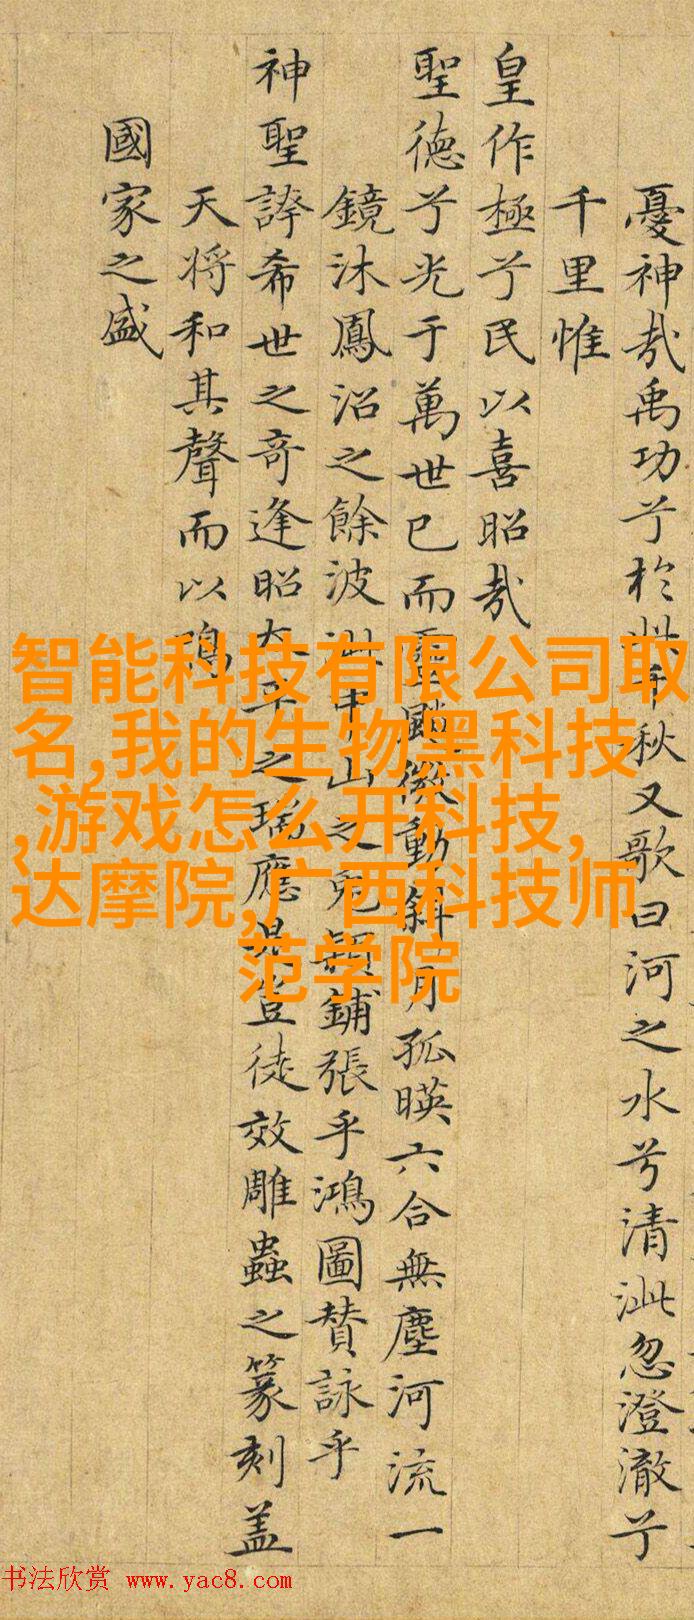 憂神哉禹功兮於 年秋又歌曰河之水兮清泚忽澄澈兮
千里惟
皇作極兮民以喜昭哉
聖德兮光于萬世已而 微動斜月孤暎六合無塵河流一
鏡沐鳳沼之餘波 中山之兔穎鋪張乎鴻圖賛詠乎
神聖誇希世之奇逢昭太平之瑞應是豈徒效雕蟲之篆刻盖
天将和其聲而以鳴
國家之盛
智能科技有限公司取
名,我的生物黑科技
,游戏怎么开科技,
达摩院,广西科技师
范学院
书法欣赏 www.yac8.com